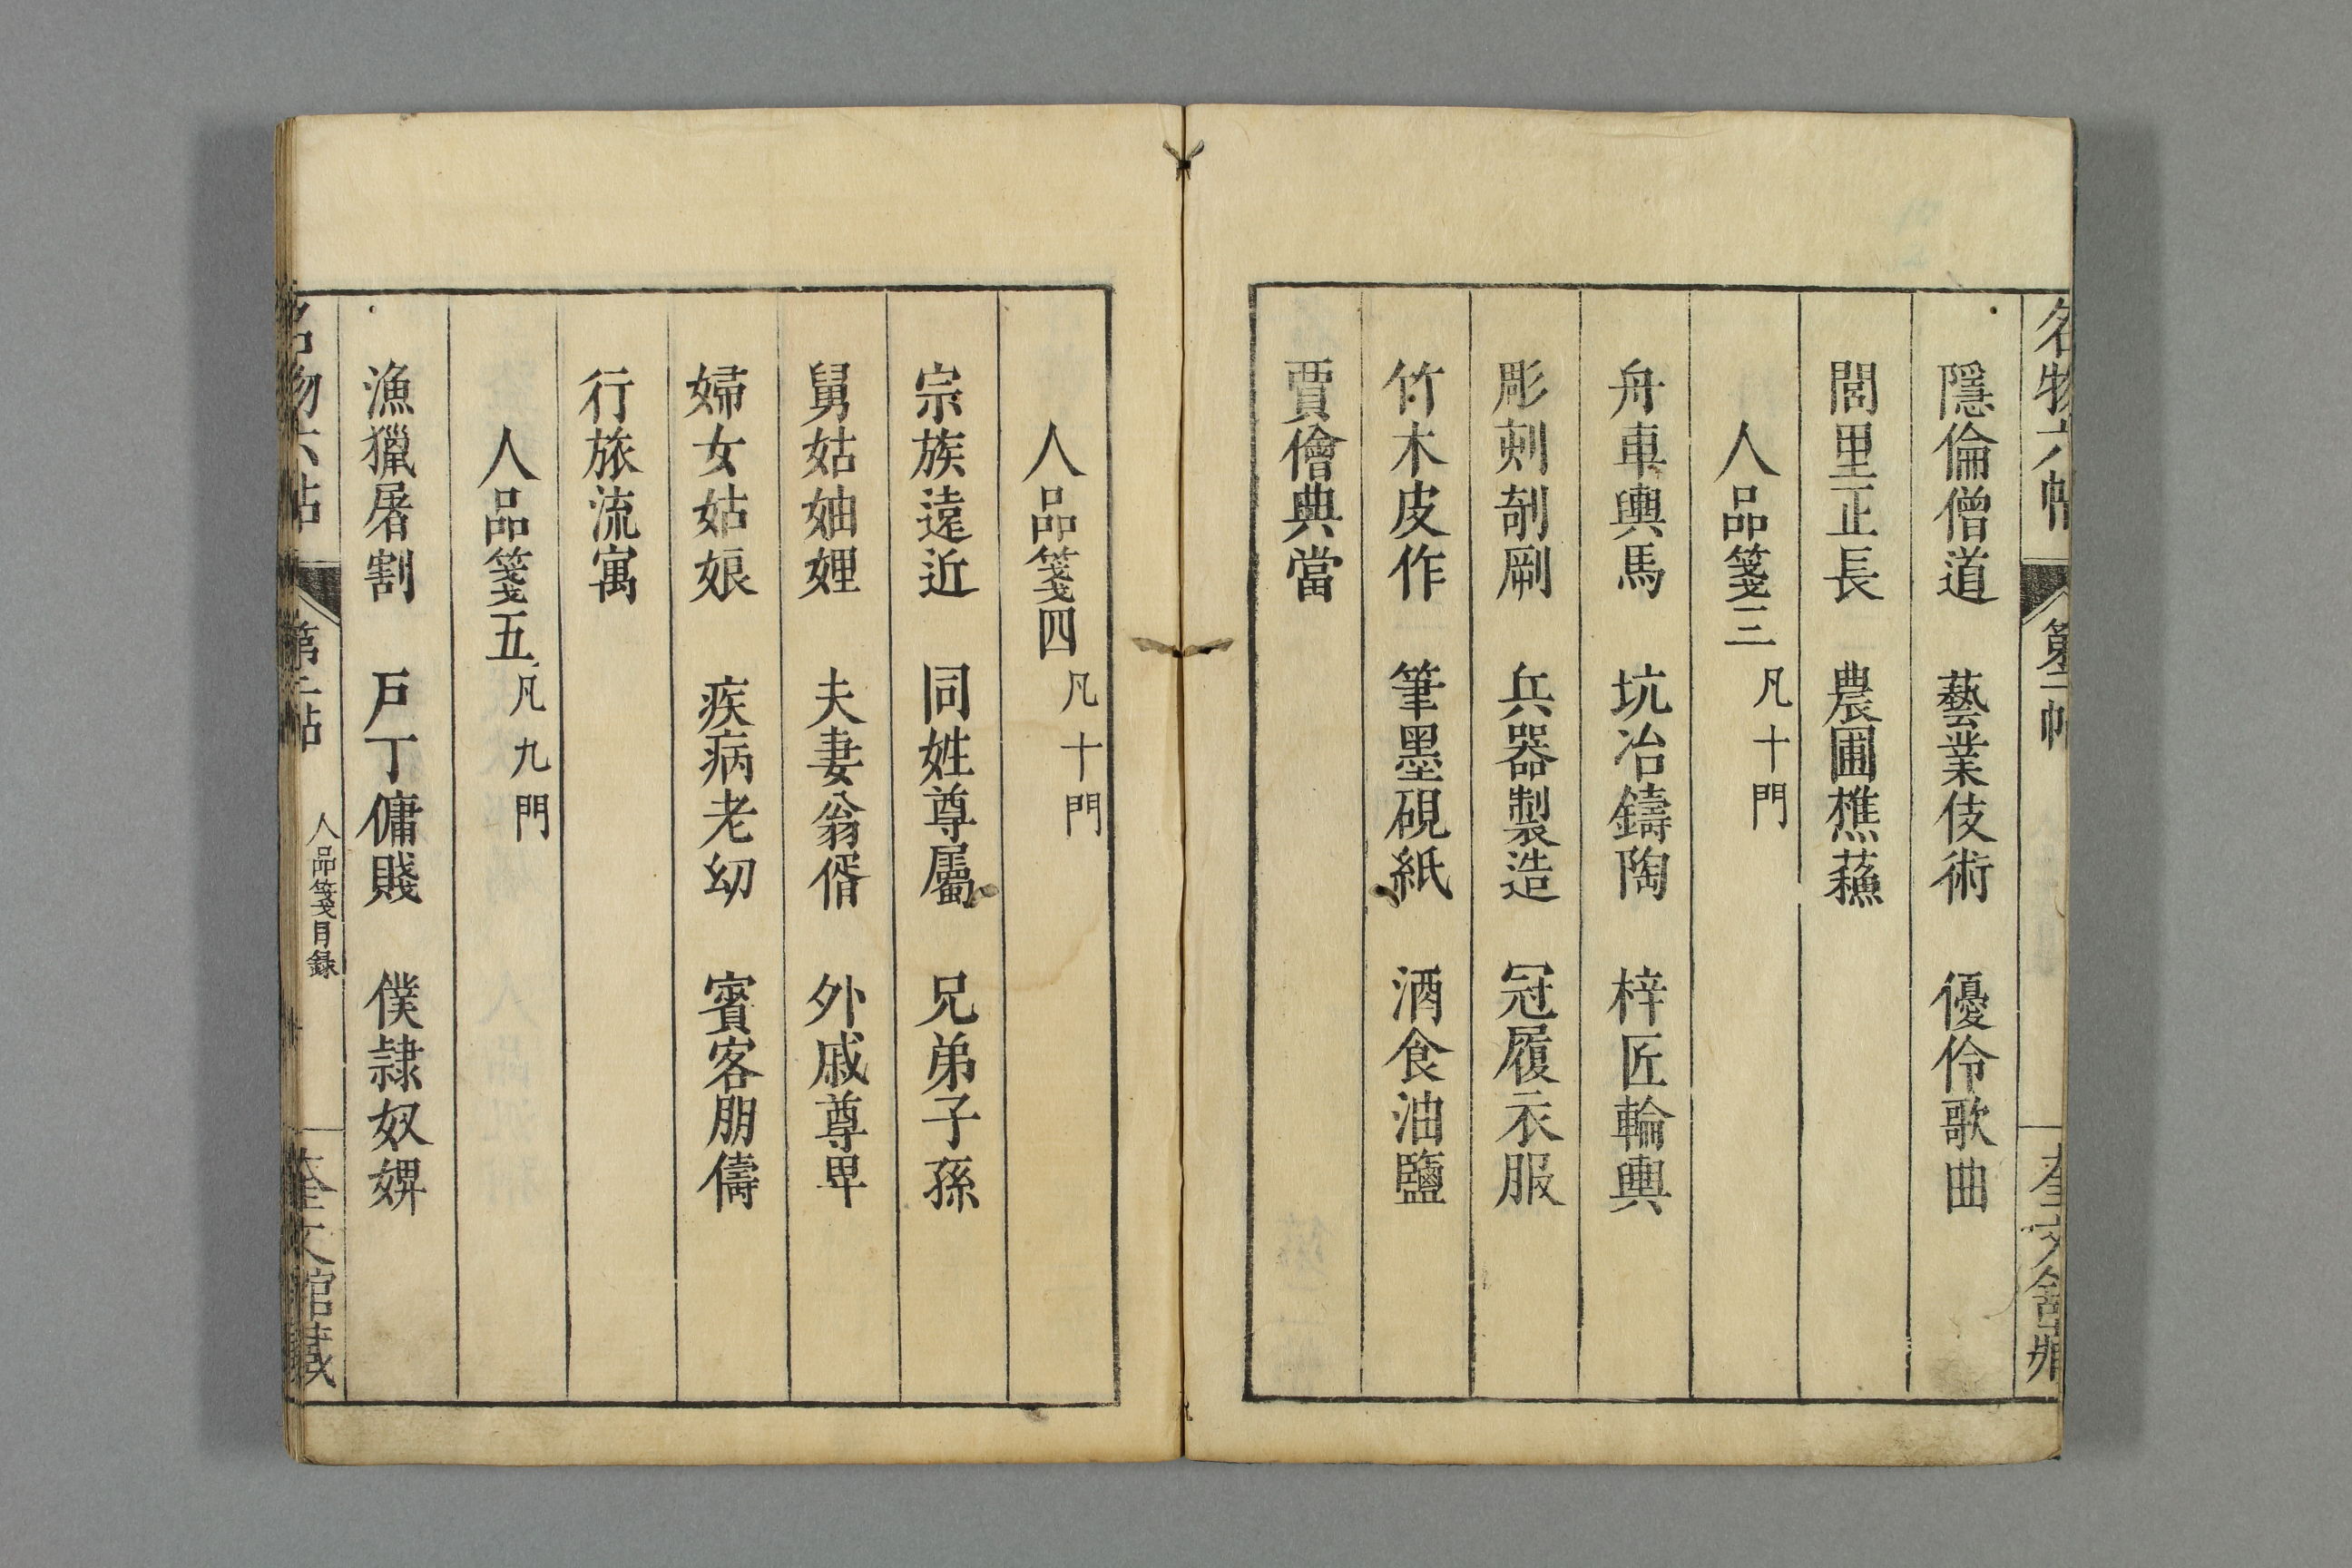 名物六帖 第二帖 奎文館藏
隱倫僧道 藝業伎術 優伶歌曲
閭里正長 農圃樵蘓
人品箋三 凡十門
舟車輿馬 坑冶鑄陶 梓匠輪輿
彫刻剞劂 兵器製造 冠履衣服
竹木皮作 筆墨硯紙 酒食油鹽
賈儈典當
人品箋四 凡十門
宗族遠近 同姓尊屬 兄弟子孫
舅姑妯娌 夫妻翁壻 外戚尊卑
婦女姑娘 疾病老幼 賓客朋儔
行旅流寓
人品箋五 凡九門
漁獵屠割 戸丁傭賤 僕隷奴婢
名物六帖 第二帖 人品箋目録 奎文館藏